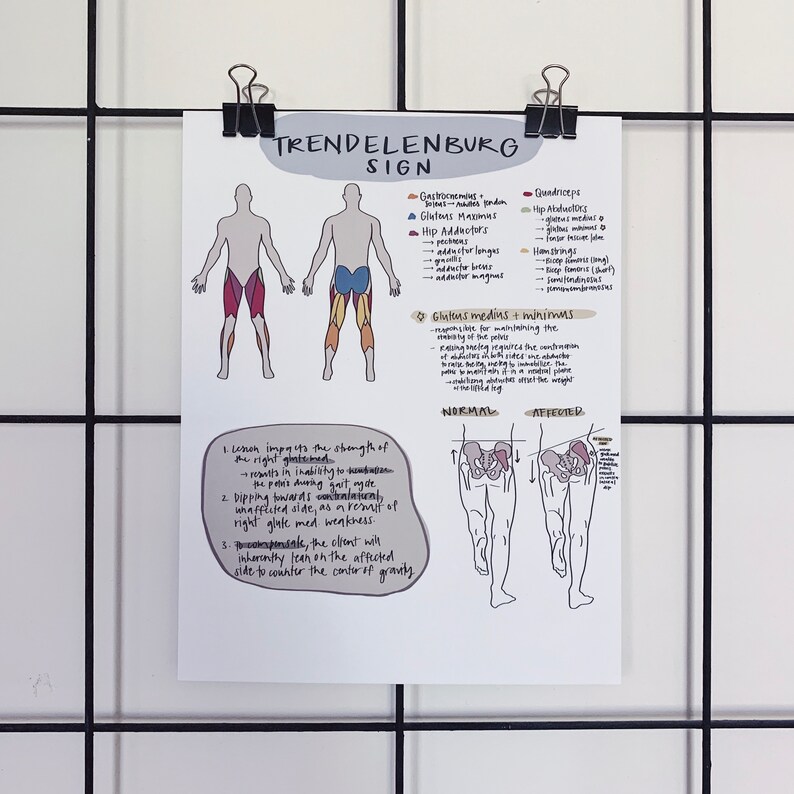 TRENDELENBURG
SIGN
Gastrocnemius +
Soleus → Achilles tendon
Gluteus Maximus
Hip Adductors
→ pectineus
→ adductor longus
→ gracillis
→ adductor brevis
→ adductor magnus
Quadriceps
Hip Abductors
→ gluteus medius
→ gluteus minimus
→ tensor fasciae latae
Hamstrings
→ Bicep femoris (long)
→ Bicep femoris (short)
→ semitendinosus
→ semimembranosus
Gluteus medius + minimus
- responsible for maintaining the
stability of the pelvis
- Raising one leg requires the contraction
of abductors on both sides: one abductor
to raise the leg, one leg to immobilize the
pelvis to maintain it in a neutral plane
→ stabilizing abductors offset the weight
of the lifted leg.
NORMAL
AFFECTED
1. Lesion impacts the strength of
the right glute med.
→ results in inability to neutralize
the pelvis during gait cycle
2. Dipping towards contralateral,
unaffected side, as a result of
right glute med. weakness.
3. To compensate, the client will
inherently lean on the affected
side to counter the center of gravity